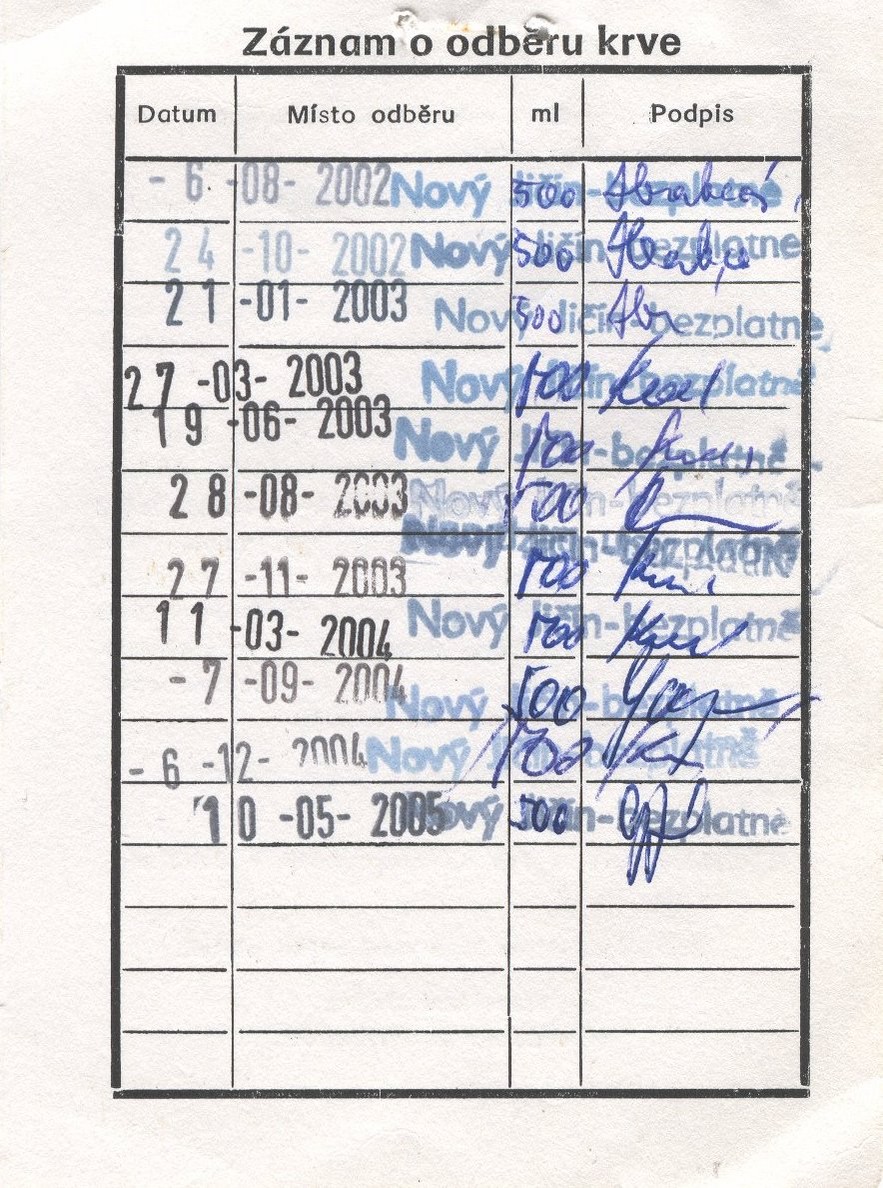 Záznam o odběru krve
Datum Místo odběru ml Podpis
- 6 -08- 2002 Nový Jičín-bezplatně 500
24 -10- 2002 Nový Jičín-bezplatně 500
21 -01- 2003 Nový Jičín-bezplatně 500
27 -03- 2003 Nový Jičín-bezplatně 500
19 -06- 2003 Nový Jičín-bezplatně 500
28 -08- 2003 Nový Jičín-bezplatně 500
27 -11- 2003 Nový Jičín-bezplatně 500
11 -03- 2004 Nový Jičín-bezplatně 500
- 7 -09- 2004 Nový Jičín-bezplatně 500
- 6 -12- 2004 Nový Jičín-bezplatně 500
10 -05- 2005 Nový Jičín-bezplatně 500